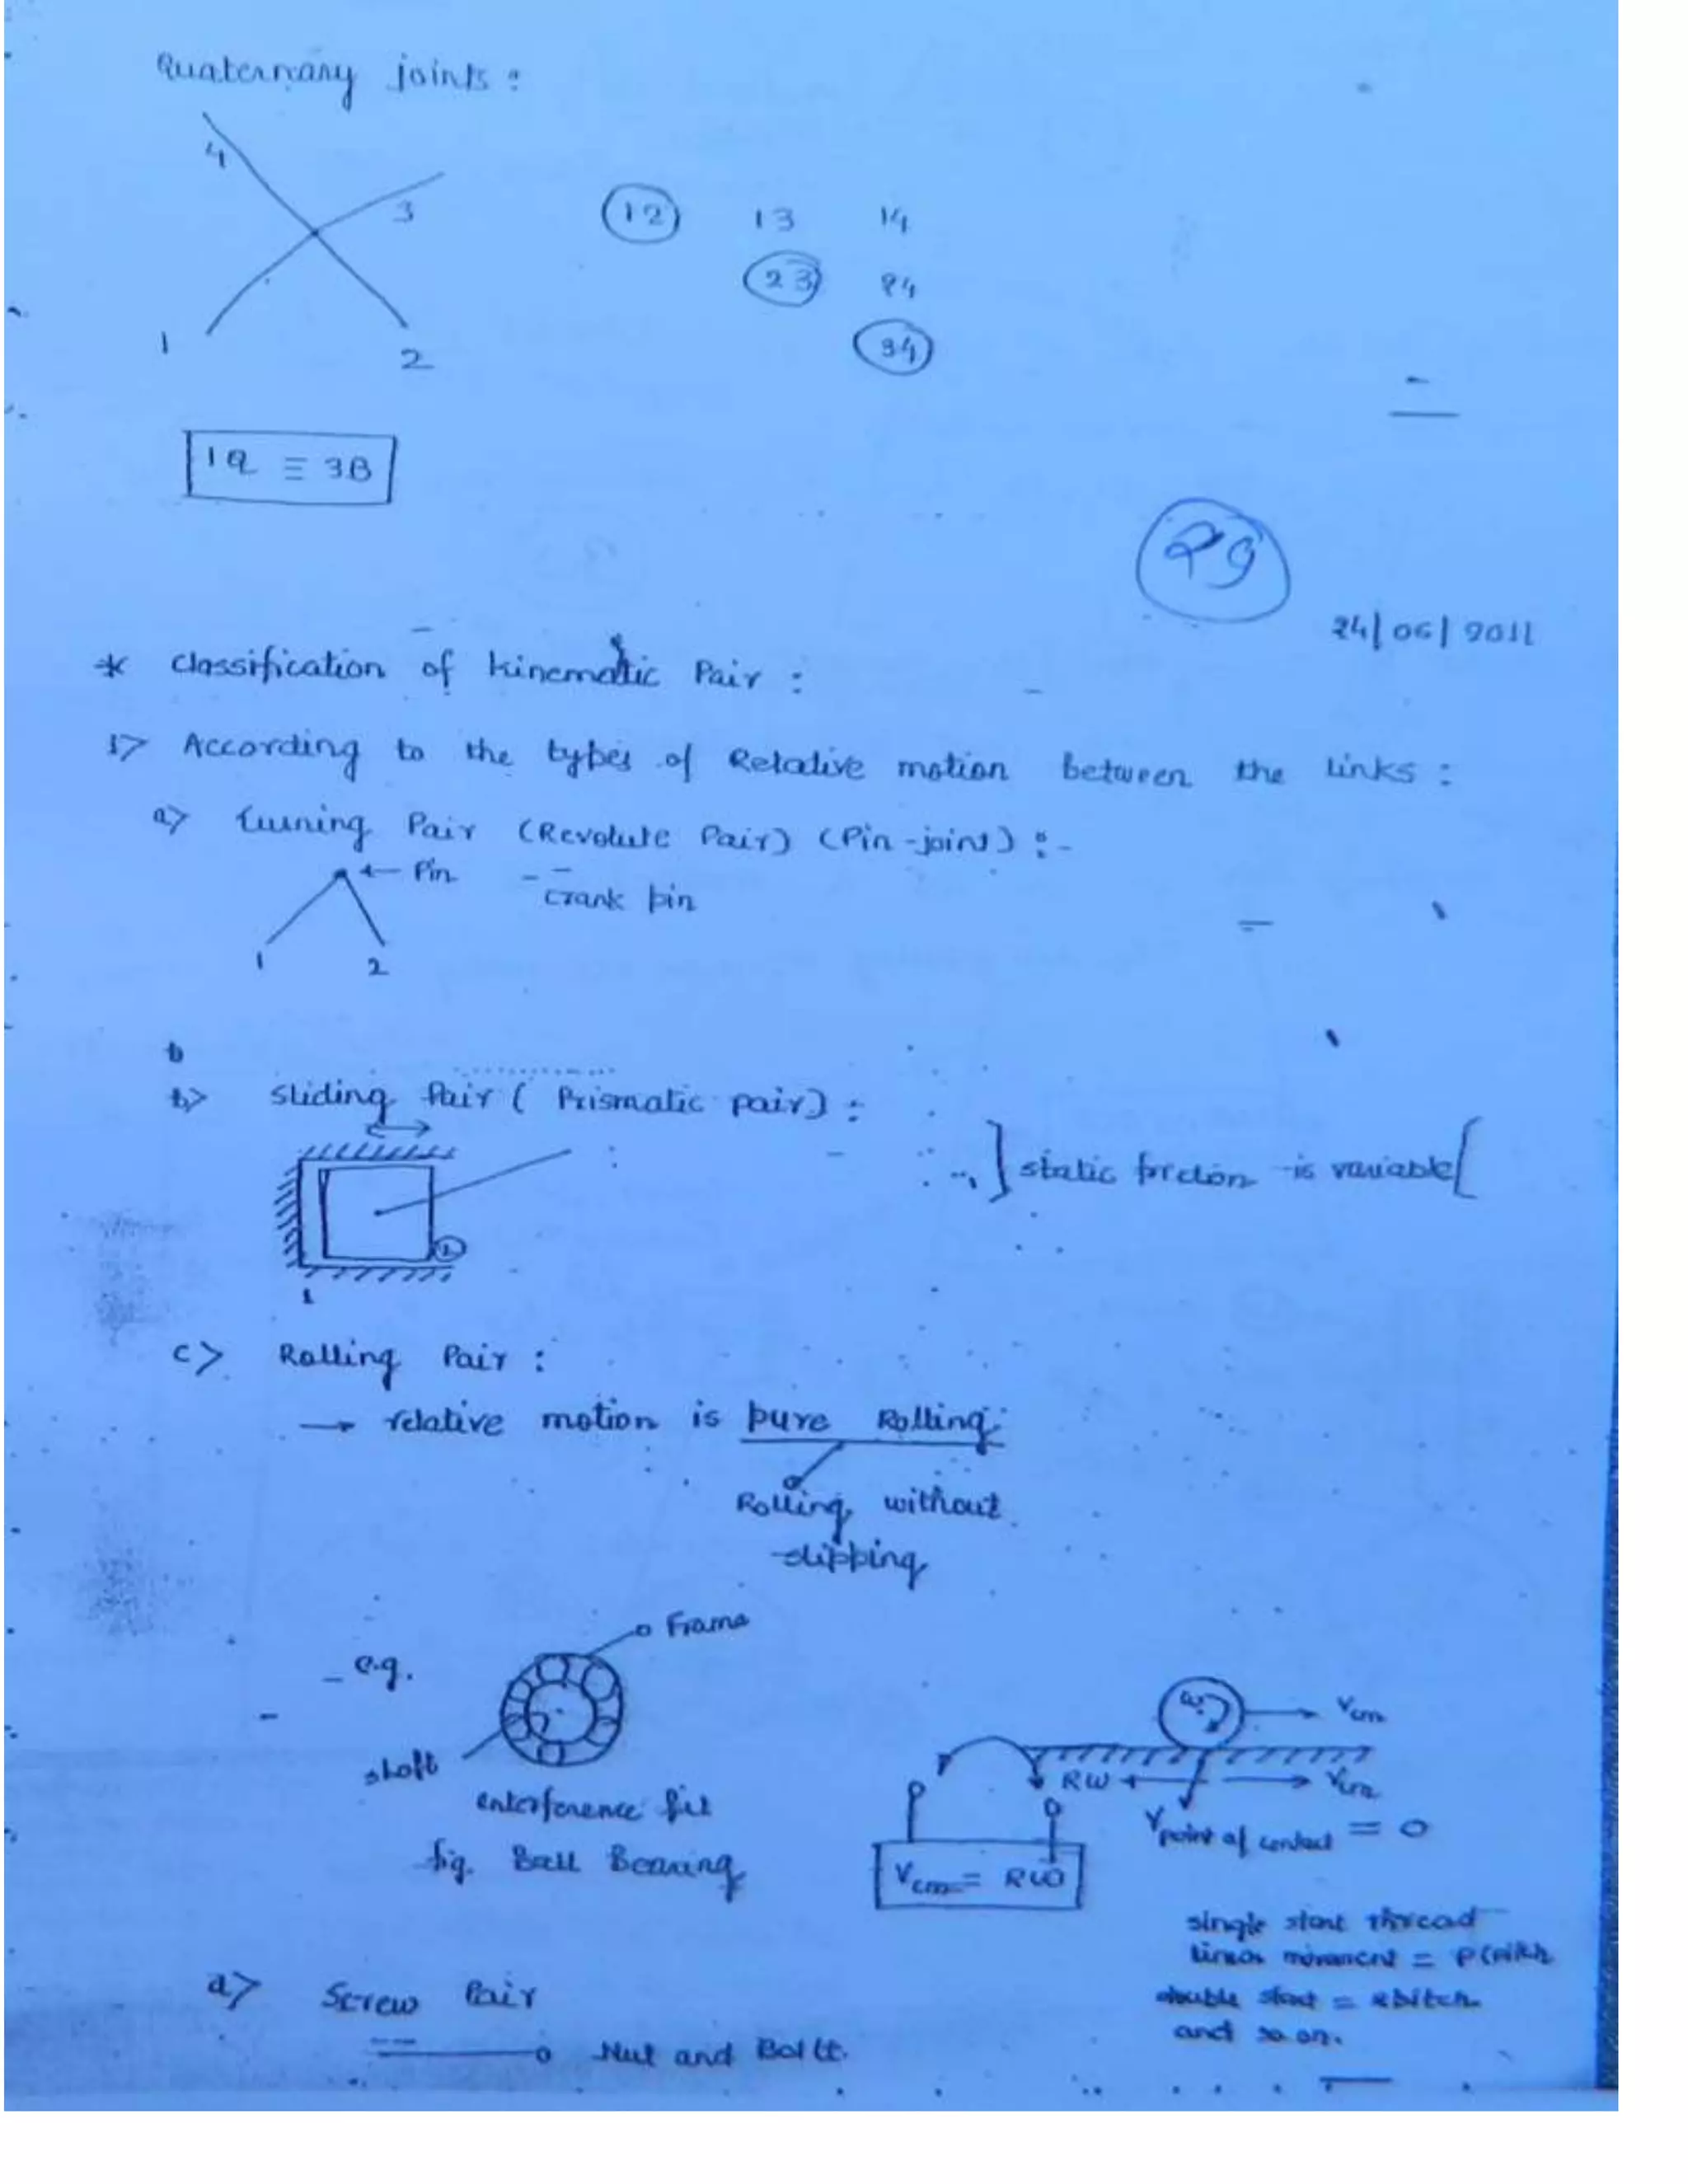 Quaternary joints :
4
3
1
2
12 13 14
23 24
34
1Q ≡ 3B
29
24/06/2011
* Classification of Kinematic Pair :
1> According to the types of Relative motion between the links :
a> turning Pair (Revolute Pair) (Pin-joint) :-
← Pin - crank pin
1 2
b
b> sliding Pair ( Prismatic pair) :
} static friction is variable {
2
1
c> Rolling Pair :
→ relative motion is pure Rolling.
Rolling without
slipping
Frame
- e.g.
shaft
interference fit
fig. Ball Bearing
ω
Vcm
RW
Vcm
Vpoint of contact = 0
Vcm = RW
single start thread
linear movement = P(pitch
double start = 2pitch
and so on.
d> Screw Pair
Nut and Bolt.